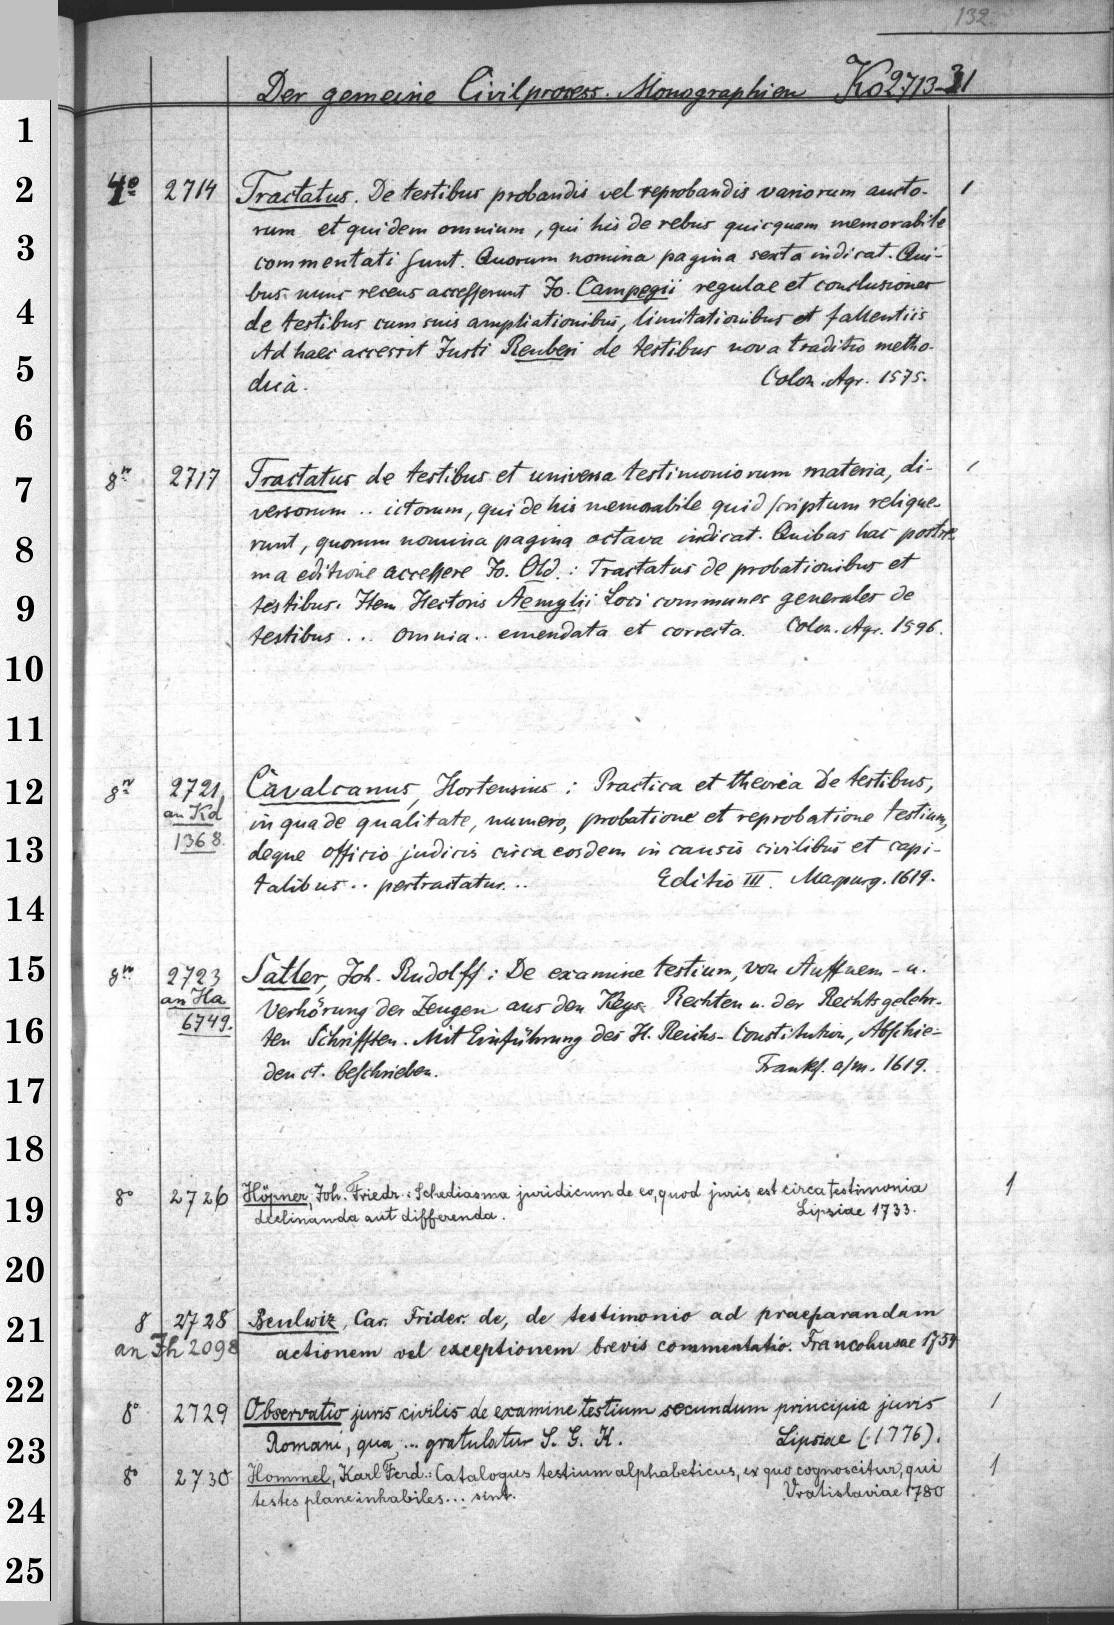 132.
Der gemeine Civilprocess. Monographien Ko2713-31
1
2
3
4
5
6
7
8
9
10
11
12
13
14
15
16
17
18
19
20
21
22
23
24
25
4º 2714 Tractatus. De testibus probandis vel reprobandis variorum aucto- 1
rum et quidem omnium, qui his de rebus quicquam memorabile
commentati sunt. Quorum nomina pagina sexta indicat. Qui-
bus nunc recens accesserunt Jo. Campegii regulae et conclusiones
de testibus cum suis ampliationibus, limitationibus et fallentiis
Ad haec accessit Justi Reuberi de testibus nova traditio metho-
dica. Colon. Agr. 1575.
8º 2717 Tractatus de testibus et universa testimoniorum materia, di- 1
versorum .. ictorum, qui de his memorabile quid scriptum relique-
runt, quorum nomina pagina octava indicat. Quibus hac postre
ma editione accessere Jo. Old.: Tractatus de probationibus et
testibus. Item Hectoris Aemylii Loci communes generales de
testibus ... omnia .. emendata et correcta. Colon. Agr. 1596.
8º 2721 Cavalcanus, Hortensius: Practica et theoria de testibus,
an Kd in qua de qualitate, numero, probatione et reprobatione testium,
1368. deque officio judicis circa eosdem in causis civilibus et capi-
talibus .. pertractatur ... Editio III. Marpurg. 1619.
8º 2723 Satler, Joh. Rudolff: De examine testium, von Auffnem- u.
an Ha Verhörung der Zeugen aus den Keys. Rechten u. der Rechtsgelehr-
6749. ten Schrifften. Mit Einführung des H. Reichs-Constitution, Abschie-
den ct. beschrieben. Frankf. a/m. 1619.
8º 2726 Höpner, Joh. Friedr.: Schediasma juridicum de eo, quod juris est circa testimonia 1
declinanda aut differenda. Lipsiae 1733.
8 2728 Beulwiz, Car. Frider. de, de testimonio ad praeparandam
an Jh 2098 actionem vel exceptionem brevis commentatio. Francohusae 1754
8º 2729 Observatio juris civilis de examine testium secundum principia juris 1
Romani, qua ... gratulatur S. G. K. Lipsiae (1776).
8º 2730 Hommel, Karl Ferd.: Catalogus testium alphabeticus, ex quo cognoscitur, qui 1
testes plane inhabiles ... sint. Vratislaviae 1780